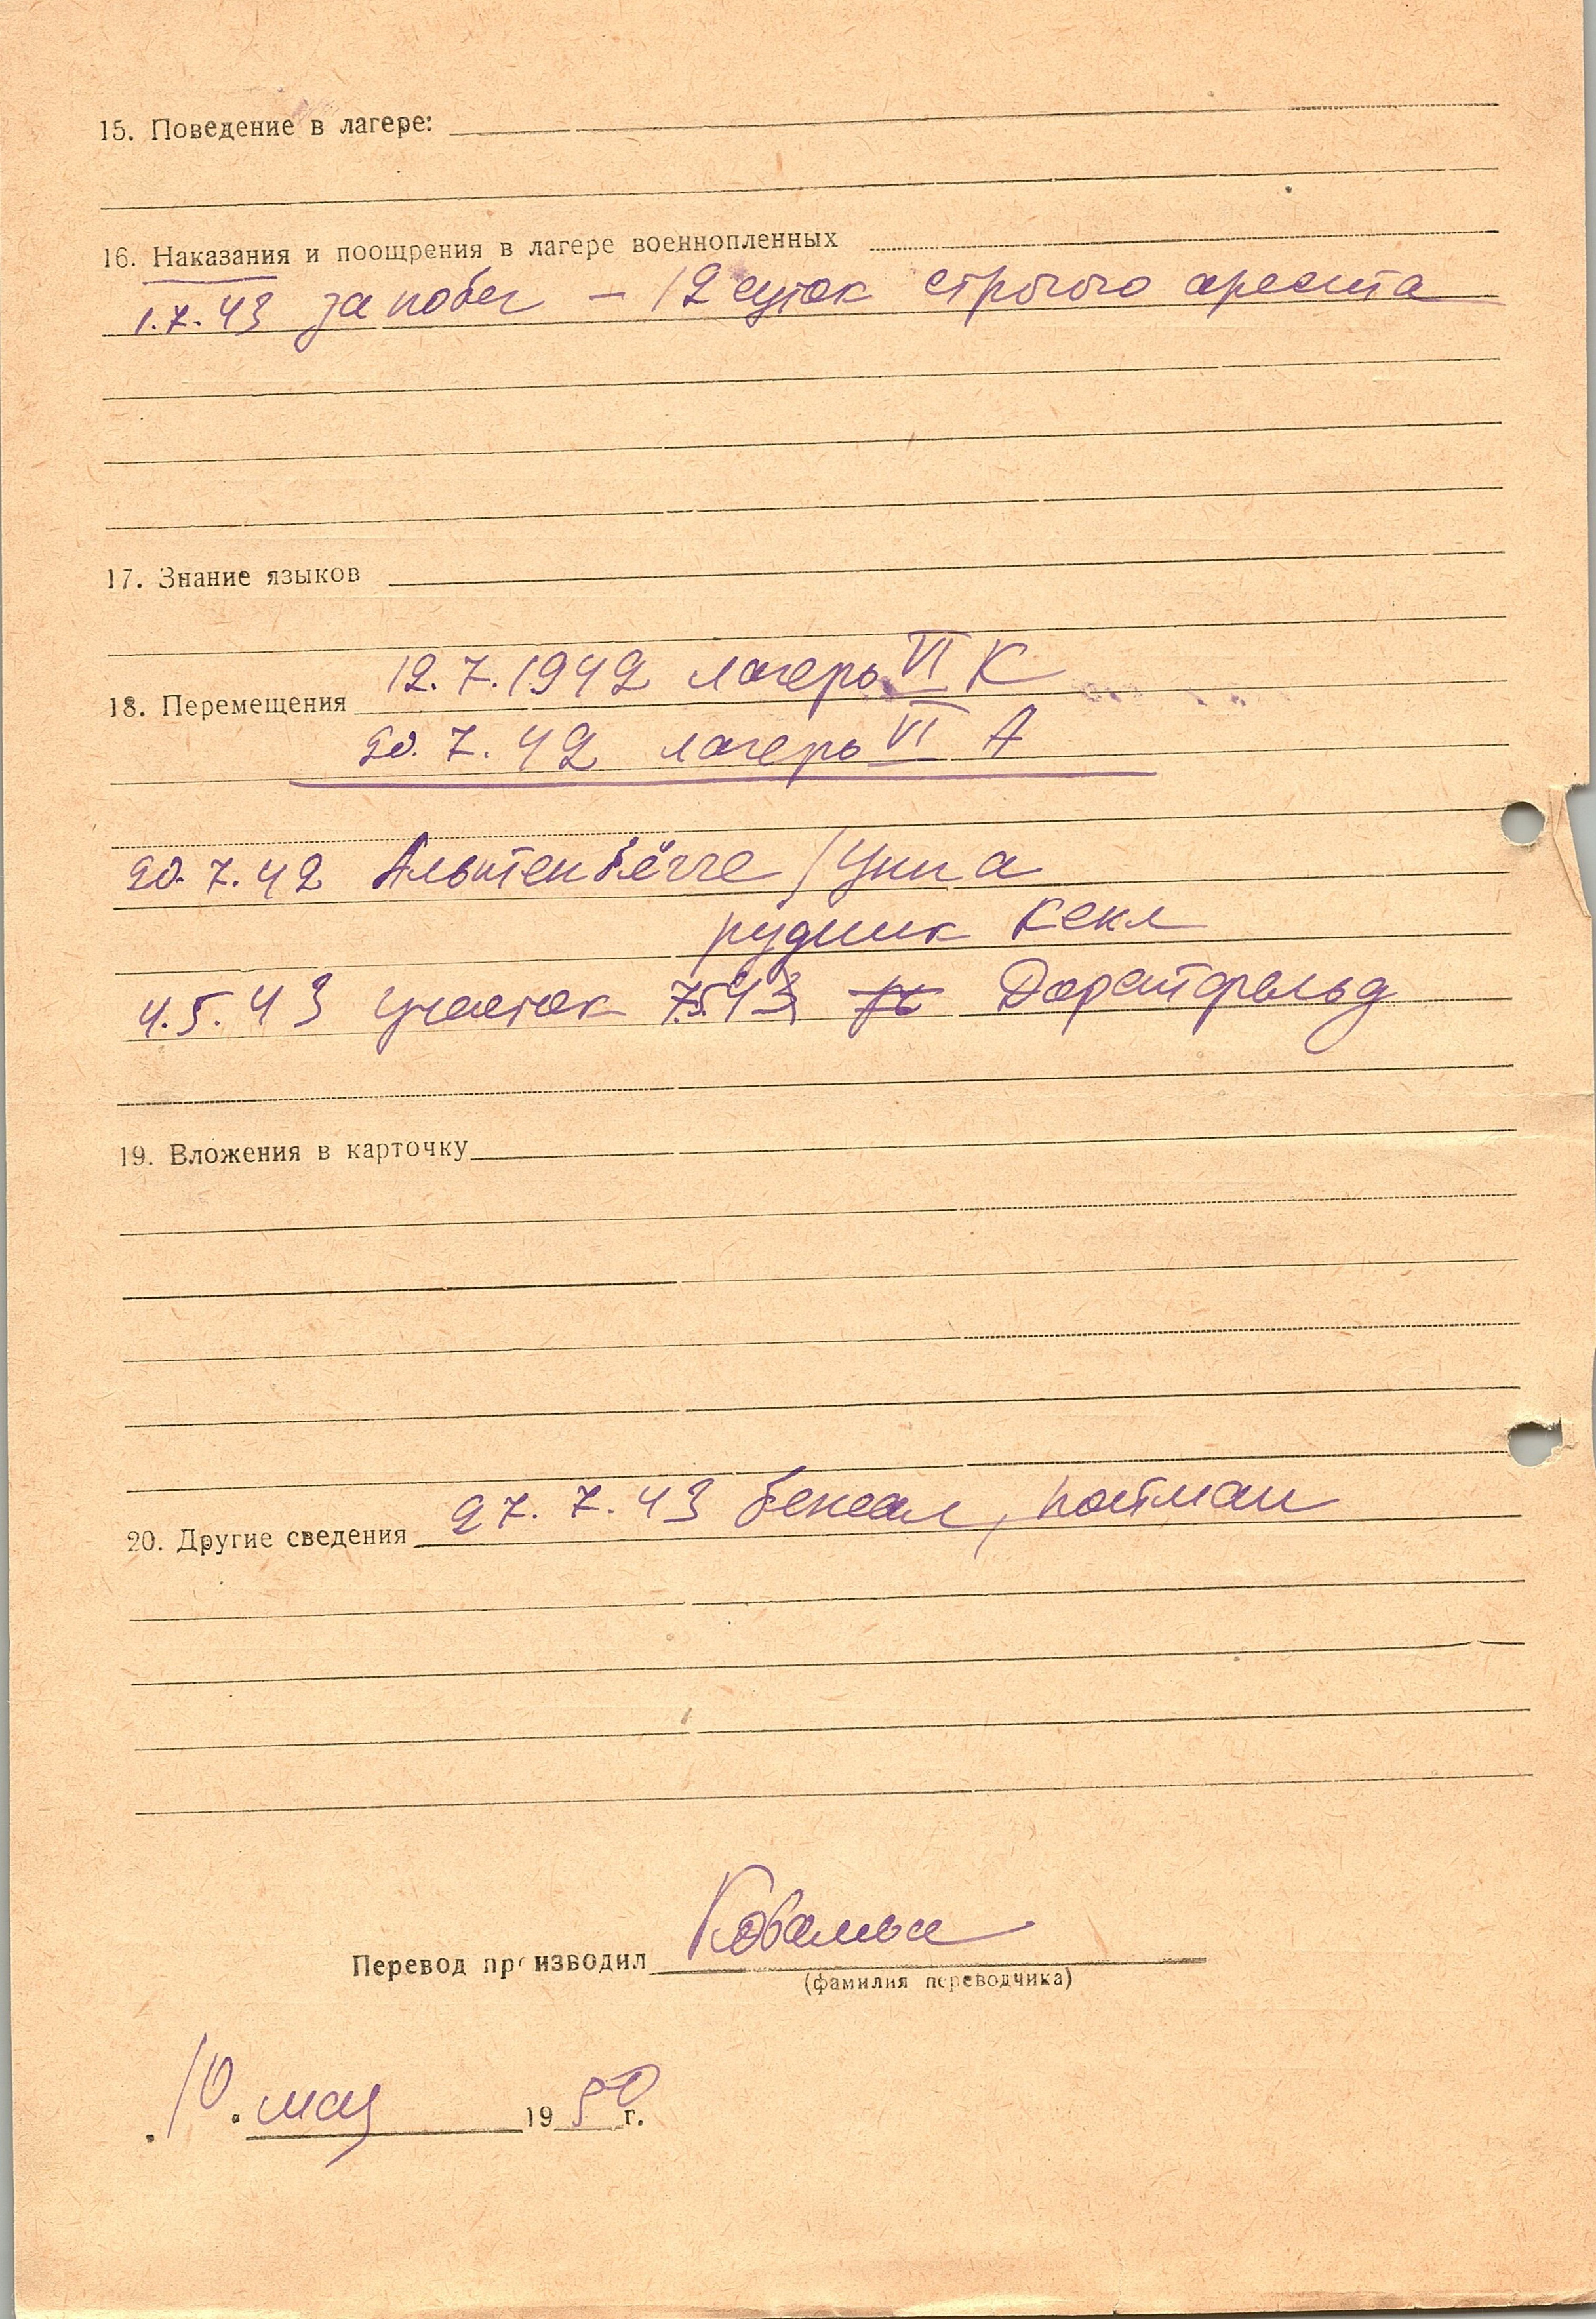 15. Поведение в лагере:
16. Наказания и поощрения в лагере военнопленных
1.7.43 за побег – 12 суток строгого ареста
17. Знание языков
12.7.1942 лагерь VI К
18. Перемещения
20.7.42 лагерь VI А
20.7.42 Альтенбёгге /Унна
рудник Кекл
4.5.43 участок 7543 Дорстфельд
19. Вложения в карточку
20. Другие сведения 27.7.43 бежал, пойман
Перевод производил
(фамилия переводчика)
10. мая 1950 г.